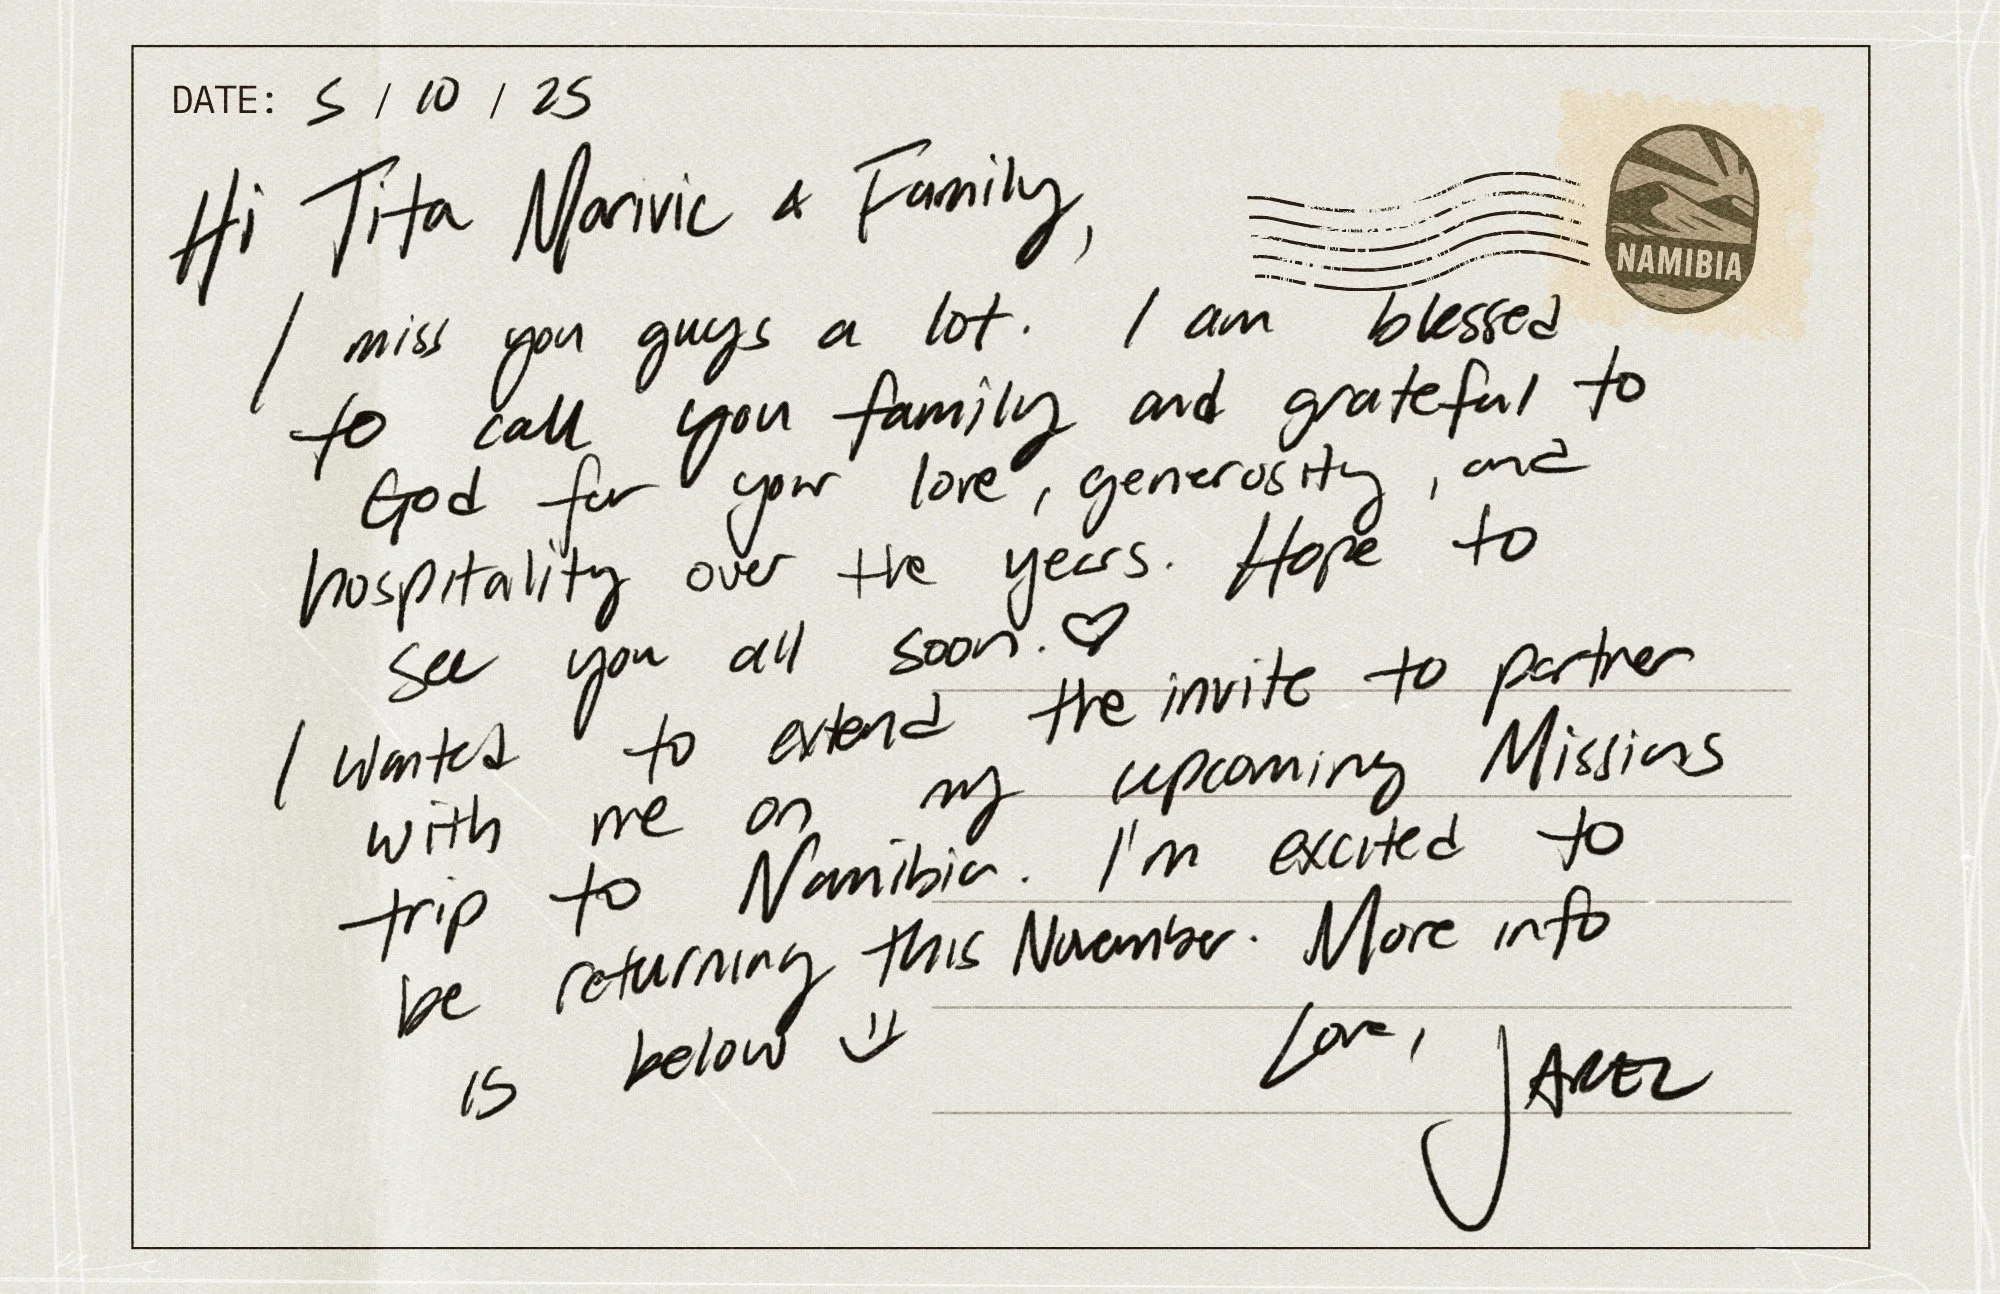 DATE: 5 / 10 / 25
Hi Tita Marivic & Family,
NAMIBIA
I miss you guys a lot. I am blessed
to call you family and grateful to
God for your love, generosity, and
hospitality over the years. Hope to
see you all soon. ♡
I wanted to extend the invite to partner
with me on my upcoming Missions
trip to Namibia. I'm excited to
be returning this November. More info
is below
Love,
JAREZ